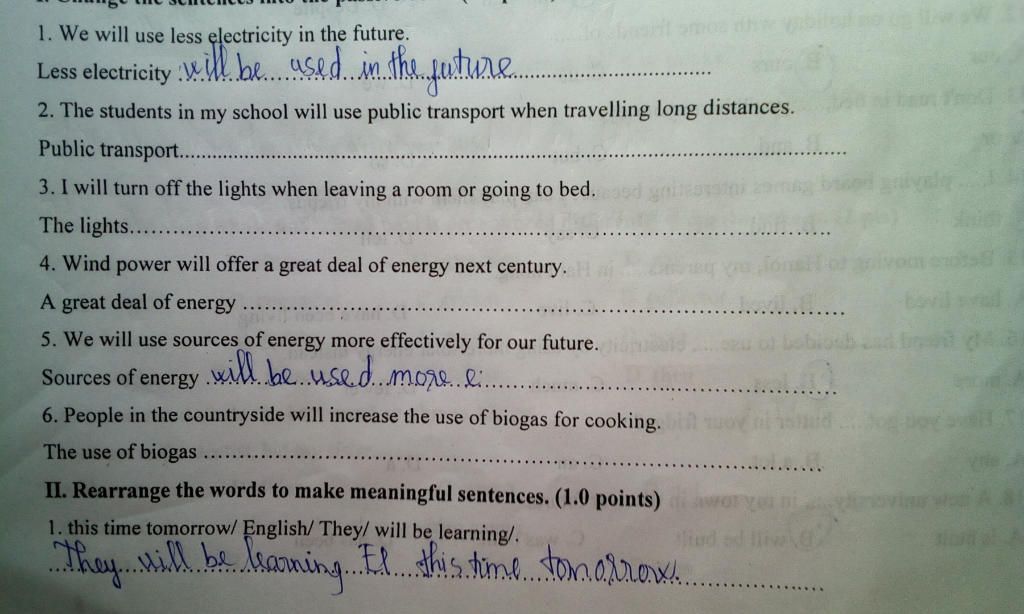 1. We will use less electricity in the future.
Less electricity will be used in the future
2. The students in my school will use public transport when travelling long distances.
Public transport
3. I will turn off the lights when leaving a room or going to bed.
The lights
4. Wind power will offer a great deal of energy next century.
A great deal of energy
5. We will use sources of energy more effectively for our future.
Sources of energy will be used more e
6. People in the countryside will increase the use of biogas for cooking.
The use of biogas
II. Rearrange the words to make meaningful sentences. (1.0 points)
1. this time tomorrow/ English/ They/ will be learning/.
They will be learning El this time tomorrow.